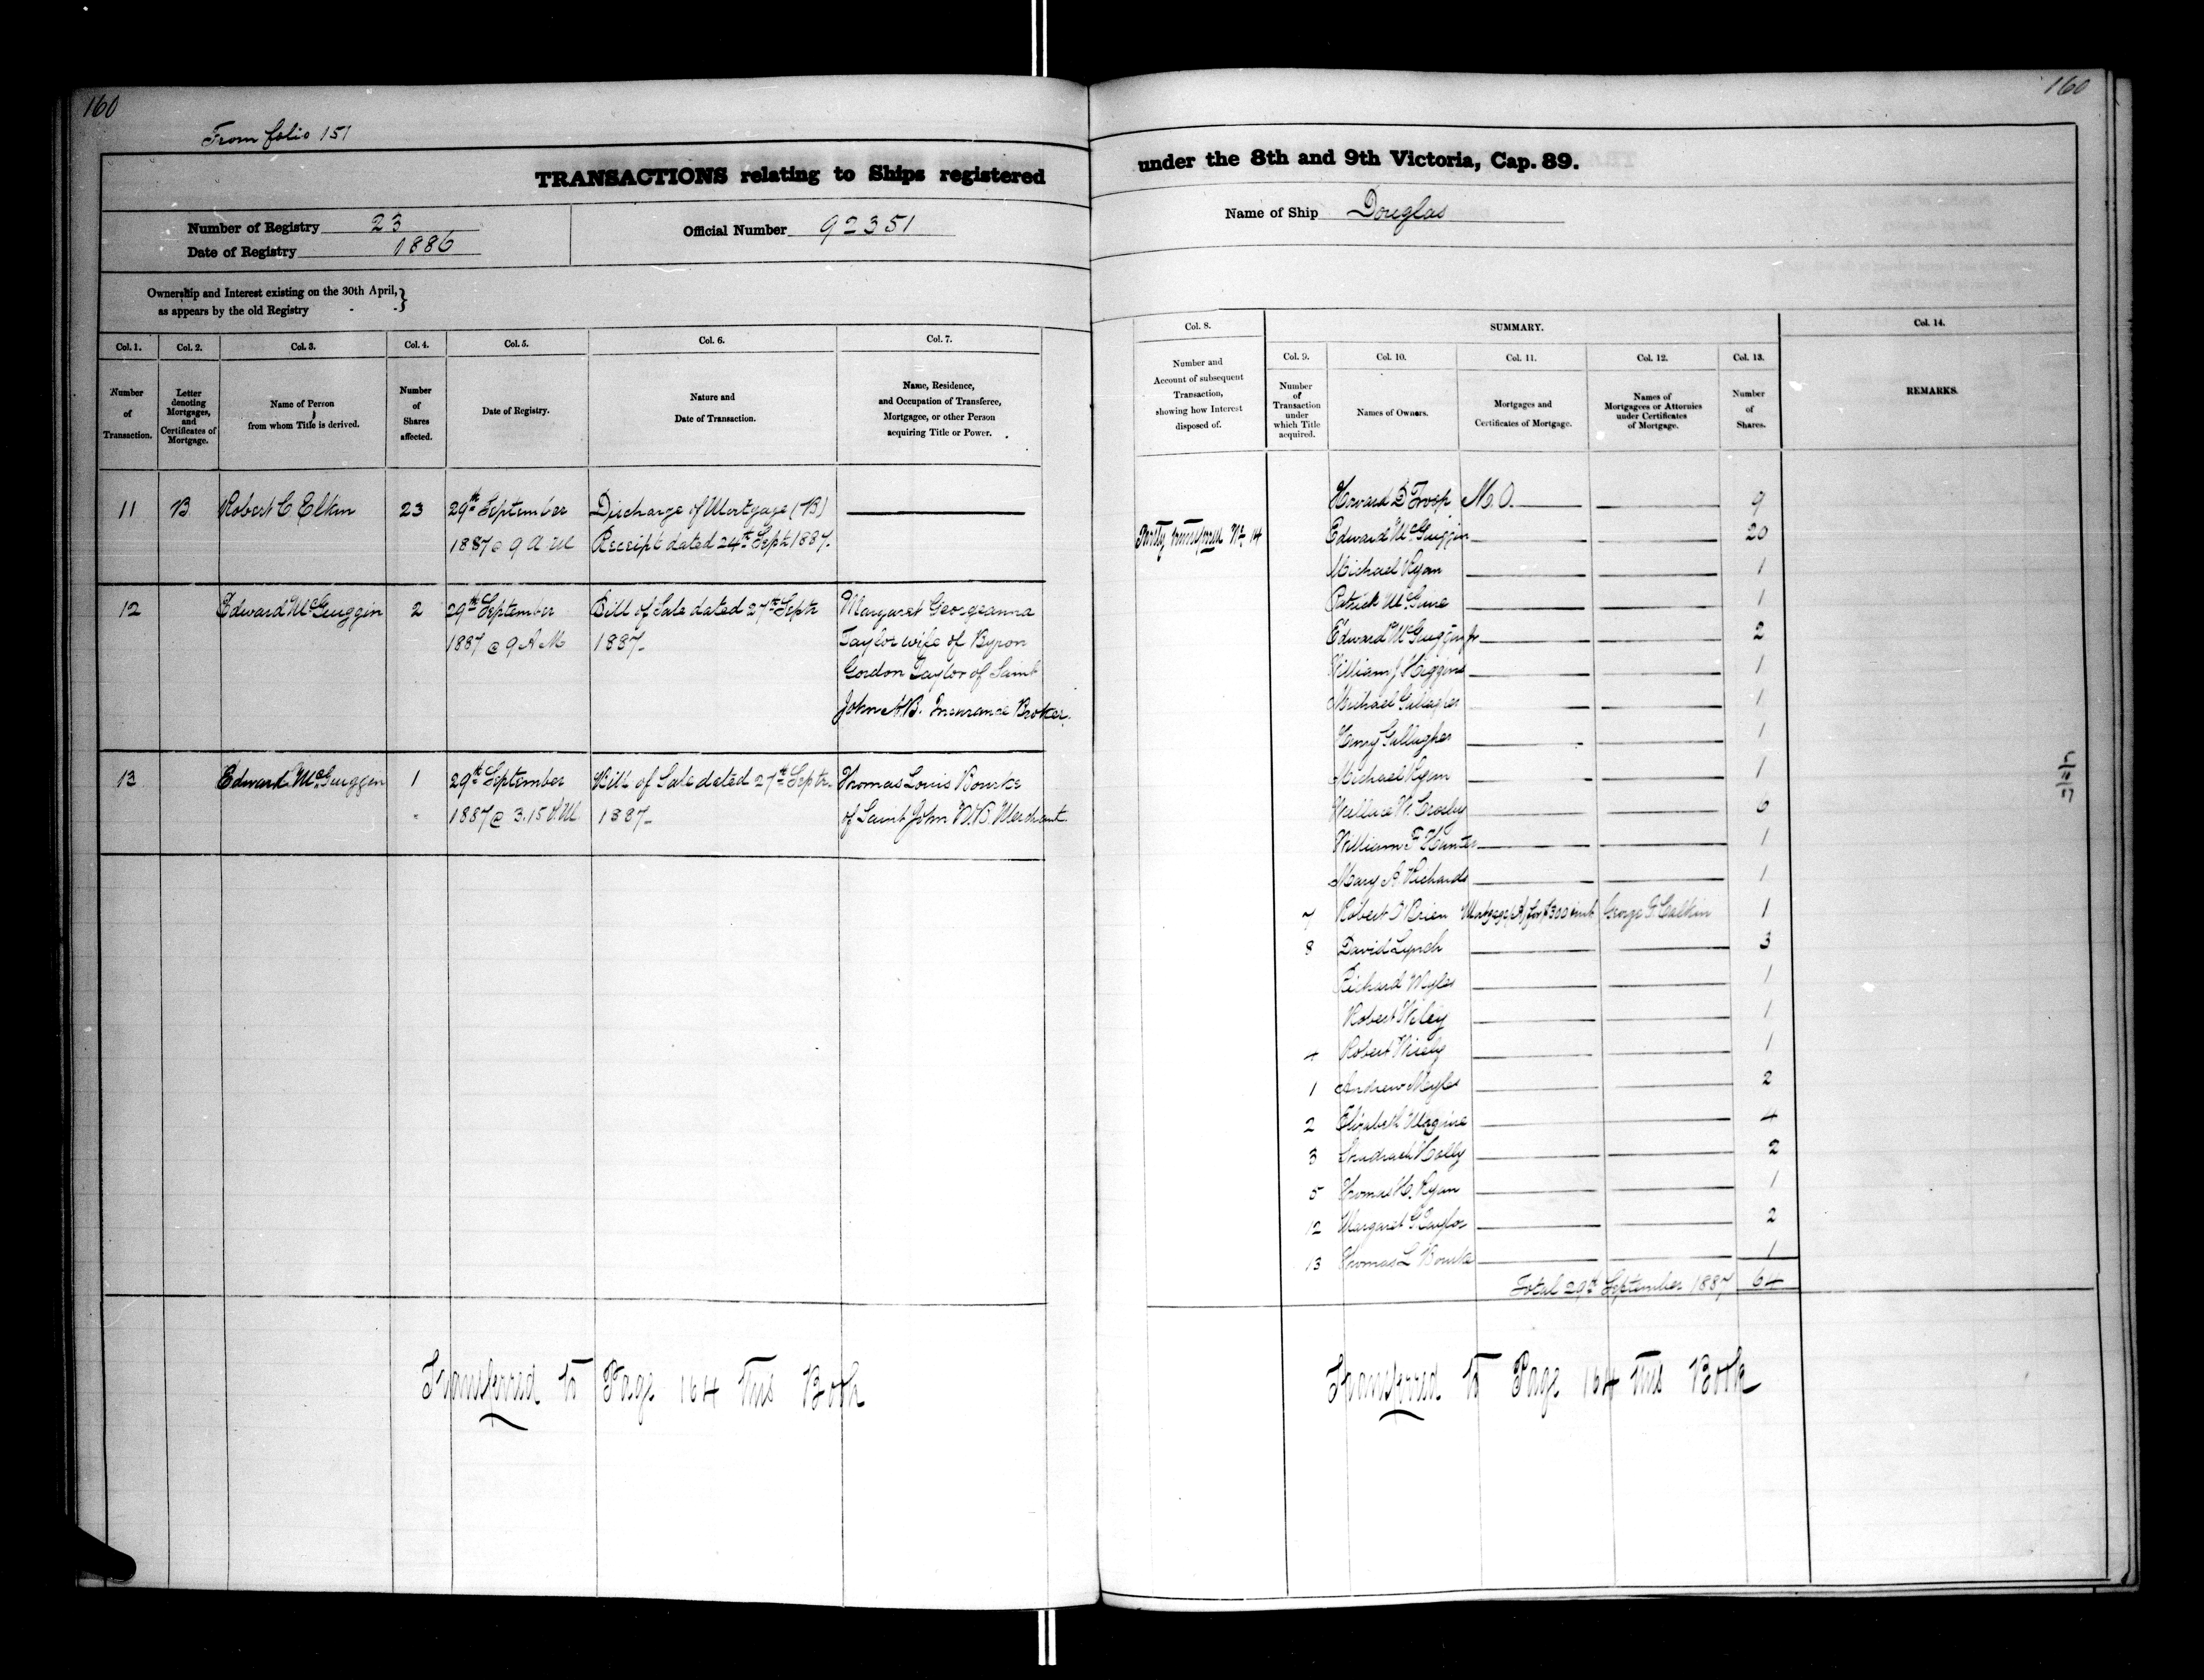 160
From folio 151
TRANSACTIONS relating to Ships registered
Number of Registry 23
Date of Registry 1886
Official Number 92351
Ownership and Interest existing on the 30th April, }
as appears by the old Registry
Col. 1. Col. 2. Col. 3. Col. 4. Col. 5. Col. 6. Col. 7.
Number of Transaction.
Letter denoting Mortgages, and Certificates of Mortgage.
Name of Person from whom Title is derived.
Number of Shares affected.
Date of Registry.
Nature and Date of Transaction.
Name, Residence, and Occupation of Transferee, Mortgagee, or other Person acquiring Title or Power.
11 B Robert C Elkin 23 29th September Discharge of Mortgage (B)
1887 @ 9 A.M Receipt dated 24th Sept 1887.
12 Edward McGuiggin 2 29th September Bill of Sale dated 27th Septr Margaret Georgeanna
1887 @ 9 A M 1887 Taylor wife of Byron
Gordon Taylor of Saint
John N.B. Insurance Broker.
13 Edward McGuiggin 1 29th September Bill of Sale dated 27th Septr Thomas Louis Bourke
1887 @ 3.15 P.M. 1887 of Saint John N.B. Merchant
Transferred to Page 164 this Book
160
under the 8th and 9th Victoria, Cap. 89.
Name of Ship Douglas
Col. 8. SUMMARY. Col. 14.
Col. 9. Col. 10. Col. 11. Col. 12. Col. 13.
Number and Account of subsequent Transaction, showing how Interest disposed of.
Number of Transaction under which Title acquired.
Names of Owners.
Mortgages and Certificates of Mortgage.
Names of Mortgagees or Attornies under Certificates of Mortgage.
Number of Shares.
REMARKS.
Howard D Troop M.O. 9
Partly transferred No 14 Edward McGuiggin 20
Michael Ryan 1
Patrick McGuire 1
Edward McGuiggin Jr 2
William J Higgins 1
Michael Gallagher 1
Henry Gallagher 1
Michael Ryan 1
Wallace W. Crosby 6
William F Hunter 1
Mary A. Richards 1
7 Robert O'Brien Mortgage (A) for $300 & int George F. Calkin 1
8 David Lynch 3
Richard Myles 1
Robert Wiley 1
4 Robert Wiely 1
1 Andrew Myles 2
2 Elizabeth Maguire 4
3 Holly 2
5 Thomas H. Ryan 1
12 Margaret G. Taylor 2
13 Thomas L Bourke 1
Total 29th September 1887 64
Transferred to Page 164 this Book